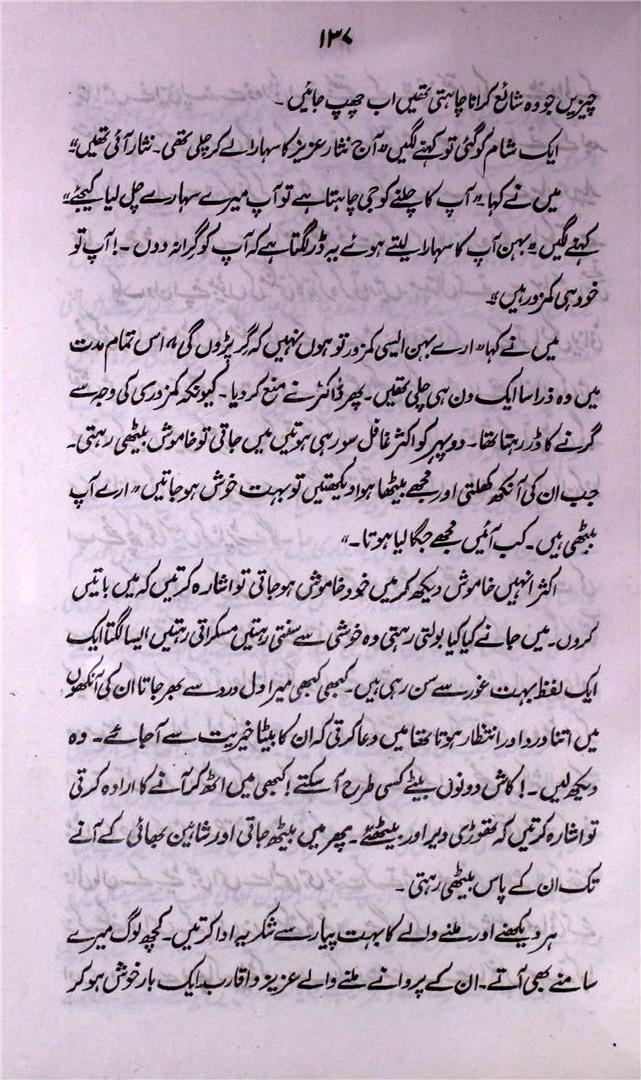 ۱۳۷
چیزیں جو وہ شائع کرانا چاہتی تھیں اب چھپ جائیں ۔
ایک شام کو گئی تو کہنے لگیں "آج نثار عزیز کا سہارا لے کر چلی تھی۔ نثار آئی تھیں"
میں نے کہا "آپ کا چلنے کو جی چاہتا ہے تو آپ میرے سہارے چل لیا کیجئے"
کہنے لگیں "بہن آپ کا سہارا لیتے ہوئے یہ ڈر لگتا ہے کہ آپ کو گرا نہ دوں ۔! آپ تو
خود ہی کمزور ہیں"
میں نے کہا "ارے بہن ایسی کمزور تو ہوں نہیں کہ گر پڑوں گی" اس تمام مدت
میں وہ ذرا سا ایک دن ہی چلی تھیں۔ پھر ڈاکٹر نے منع کر دیا۔ کیونکہ کمزوری کی وجہ سے
گرنے کا ڈر رہتا تھا۔ دوپہر کو اکثر غافل سو رہی ہوتیں میں جاتی تو خاموش بیٹھی رہتی۔
جب ان کی آنکھ کھلتی اور مجھے بیٹھا ہوا دیکھتیں تو بہت خوش ہو جاتیں "ارے آپ
بیٹھی ہیں۔ کب آئیں مجھے جگا لیا ہوتا۔"
اکثر انہیں خاموش دیکھ کر میں خود خاموش ہو جاتی تو اشارہ کرتیں کہ میں باتیں
کروں۔ میں جانے کیا کیا بولتی رہتی وہ خوشی سے سنتی رہتیں مسکراتی رہتیں ایسا لگتا ایک
ایک لفظ بہت غور سے سن رہی ہیں۔ کبھی کبھی میرا دل درد سے بھر جاتا ان کی آنکھوں
میں اتنا درد اور انتظار ہوتا تھا میں دعا کرتی کہ ان کا بیٹا خیریت سے آ جائے۔ وہ
دیکھ لیں ۔! کاش دونوں بیٹے کسی طرح آ سکتے! کبھی میں اٹھ کر آنے کا ارادہ کرتی
تو اشارہ کرتیں کہ تھوڑی دیر اور بیٹھئے۔ پھر میں بیٹھ جاتی اور شاہین بھائی کے آنے
تک ان کے پاس بیٹھی رہتی ۔
ہر دیکھنے اور ملنے والے کا بہت پیار سے شکریہ ادا کرتیں۔ کچھ لوگ میرے
سامنے بھی آتے۔ ان کے پروانے ملنے والے عزیز و اقارب ایک بار خوش ہو کر